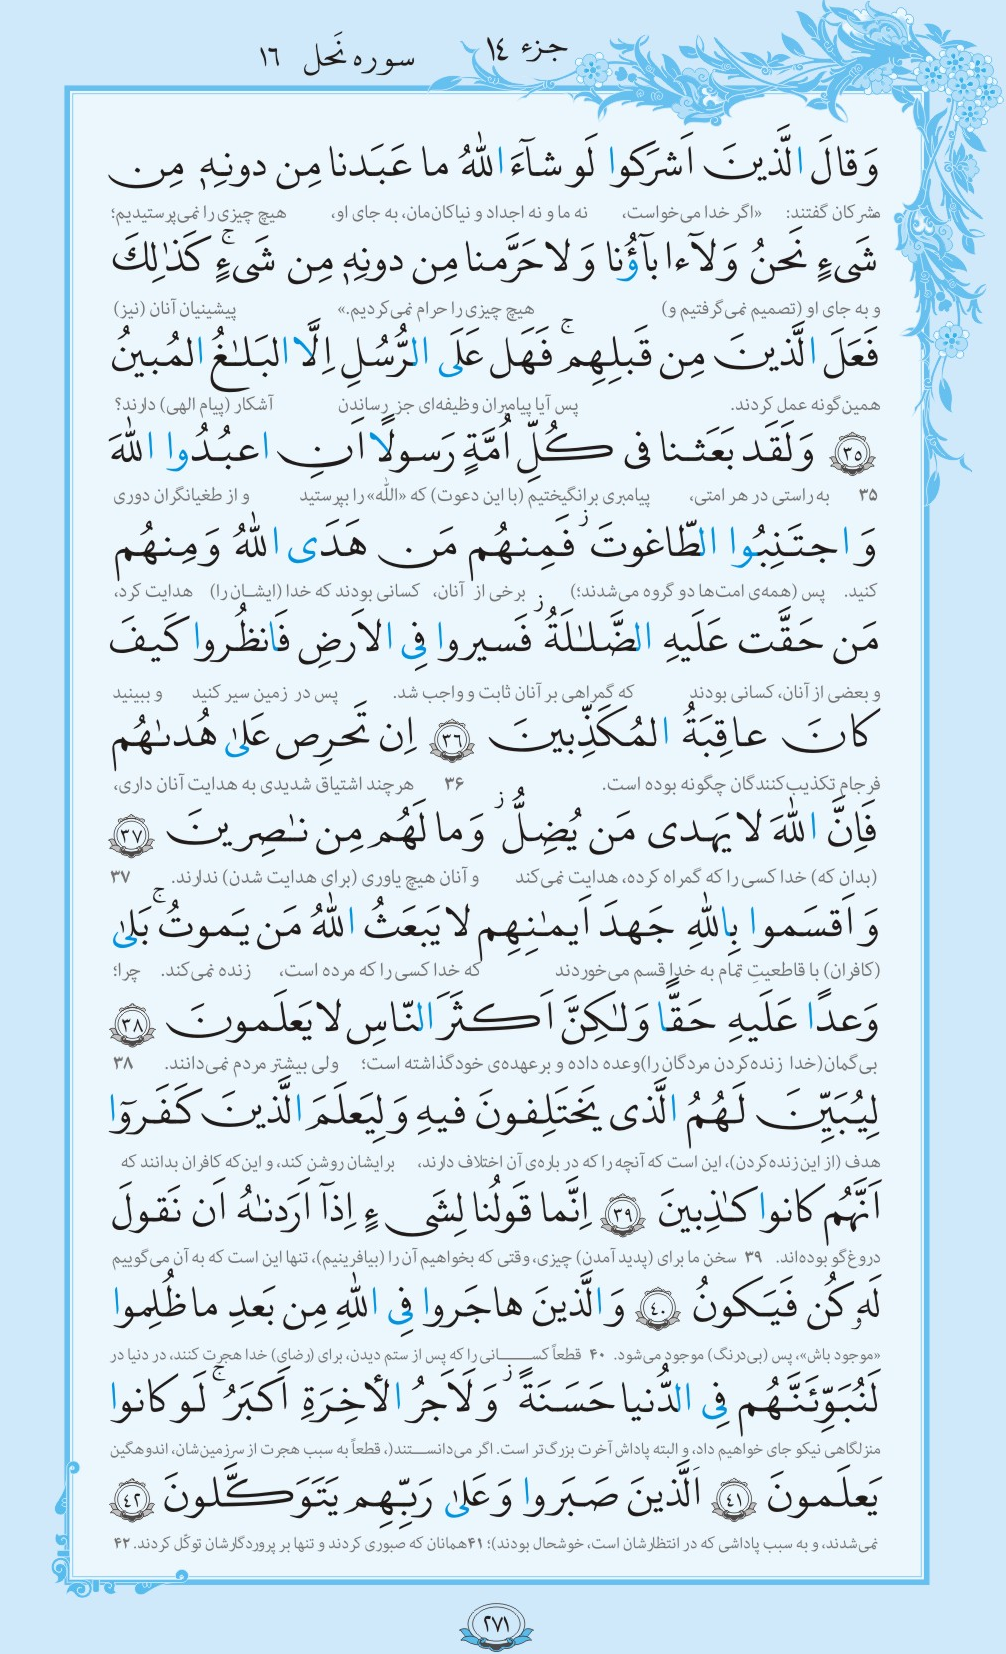 جزء ١٤
سوره نَحل ١٦
وَ قالَ الَّذينَ اَشرَكوا لَو شآءَ اللّٰهُ ما عَبَدنا مِن دونِهٖ مِن
مشرکان گفتند: «اگر خدا می‌خواست، نه ما و نه اجداد و نیاکان‌مان، به جای او، هیچ چیزی را نمی‌پرستیدیم؛
شَیءٍ نَحنُ وَ لآ ءابآؤُنا وَ لا حَرَّمنا مِن دونِهٖ مِن شَیءٍ ۚ كَذٰلِكَ
و به جای او (تصمیم نمی‌گرفتیم و) هیچ چیزی را حرام نمی‌کردیم.» پیشینیان آنان (نیز)
فَعَلَ الَّذينَ مِن قَبلِهِم ۚ فَهَل عَلَی الرُّسُلِ اِلَّا البَلٰغُ المُبينُ
همین‌گونه عمل کردند. پس آیا پیامبران وظیفه‌ای جز رساندن آشکار (پیام الهی) دارند؟
٣٥ وَ لَقَد بَعَثنا فی كُلِّ اُمَّةٍ رَسولًا اَنِ اعبُدُوا اللّٰهَ
۳۵ به‌راستی در هر امتی، پیامبری برانگیختیم (با این دعوت) که «اللّٰه» را بپرستید و از طغیانگران دوری
وَ اجتَنِبُوا الطّاغوتَ ۖ فَمِنهُم مَن هَدَی اللّٰهُ وَ مِنهُم
کنید. پس (همه‌ی امت‌ها دو گروه می‌شدند؛) برخی از آنان، کسانی بودند که خدا (ایشان را) هدایت کرد،
مَن حَقَّت عَلَيهِ الضَّلٰلَةُ ۚ فَسيروا فِی الاَرضِ فَانظُروا كَيفَ
و بعضی از آنان، کسانی بودند که گمراهی بر آنان ثابت و واجب شد. پس در زمین سیر کنید و ببینید
كانَ عاقِبَةُ المُكَذِّبينَ ٣٦ اِن تَحرِص عَلیٰ هُدىٰهُم
فرجام تکذیب‌کنندگان چگونه بوده است. ۳۶ هرچند اشتیاق شدیدی به هدایت آنان داری،
فَاِنَّ اللّٰهَ لا يَهدی مَن يُضِلُّ ۖ وَ ما لَهُم مِن نٰصِرينَ ٣٧
(بدان که) خدا کسی را که گمراه کرده، هدایت نمی‌کند و آنان هیچ یاوری (برای هدایت شدن) ندارند. ۳۷
وَ اَقسَموا بِاللّٰهِ جَهدَ اَيمٰنِهِم لا يَبعَثُ اللّٰهُ مَن يَموتُ ۚ بَلیٰ
(کافران) با قاطعیتِ تمام به خدا قسم می‌خوردند که خدا کسی را که مرده است، زنده نمی‌کند. چرا؛
وَعدًا عَلَيهِ حَقًّا وَ لٰكِنَّ اَكثَرَ النّاسِ لا يَعلَمونَ ٣٨
بی‌گمان(خدا زنده‌کردن مردگان را)وعده داده و برعهده‌ی خودگذاشته است؛ ولی بیشتر مردم نمی‌دانند. ۳۸
لِيُبَيِّنَ لَهُمُ الَّذی يَختَلِفونَ فيهِ وَ لِيَعلَمَ الَّذينَ كَفَروٓا
هدف (از این زنده‌کردن)، این است که آنچه را که در باره‌ی آن اختلاف دارند، برایشان روشن کند، و این‌که کافران بدانند که
اَنَّهُم كانوا كٰذِبينَ ٣٩ اِنَّما قَولُنا لِشَیءٍ اِذآ اَرَدنٰهُ اَن نَقولَ
دروغ‌گو بوده‌اند. ۳۹ سخن ما برای (پدید آمدن) چیزی، وقتی که بخواهیم آن را (بیافرینیم)، تنها این است که به آن می‌گوییم
لَهٗ كُن فَيَكونُ ٤٠ وَ الَّذينَ هاجَروا فِی اللّٰهِ مِن بَعدِ ما ظُلِموا
«موجود باش»، پس (بی‌درنگ) موجود می‌شود. ۴۰ قطعاً کسانی را که پس از ستم دیدن، برای (رضای) خدا هجرت کنند، در دنیا در
لَنُبَوِّئَنَّهُم فِی الدُّنيا حَسَنَةً ۖ وَ لَاَجرُ الأٓخِرَةِ اَكبَرُ ۚ لَو كانوا
منزلگاهی نیکو جای خواهیم داد، و البته پاداش آخرت بزرگ‌تر است. اگر می‌دانستند(، قطعاً به سبب هجرت از سرزمین‌شان، اندوهگین
يَعلَمونَ ٤١ اَلَّذينَ صَبَروا وَ عَلیٰ رَبِّهِم يَتَوَكَّلونَ ٤٢
نمی‌شدند، و به سبب پاداشی که در انتظارشان است، خوشحال بودند)؛ ۴۱همانان که صبوری کردند و تنها بر پروردگارشان توکّل کردند. ۴۲
٢٧١